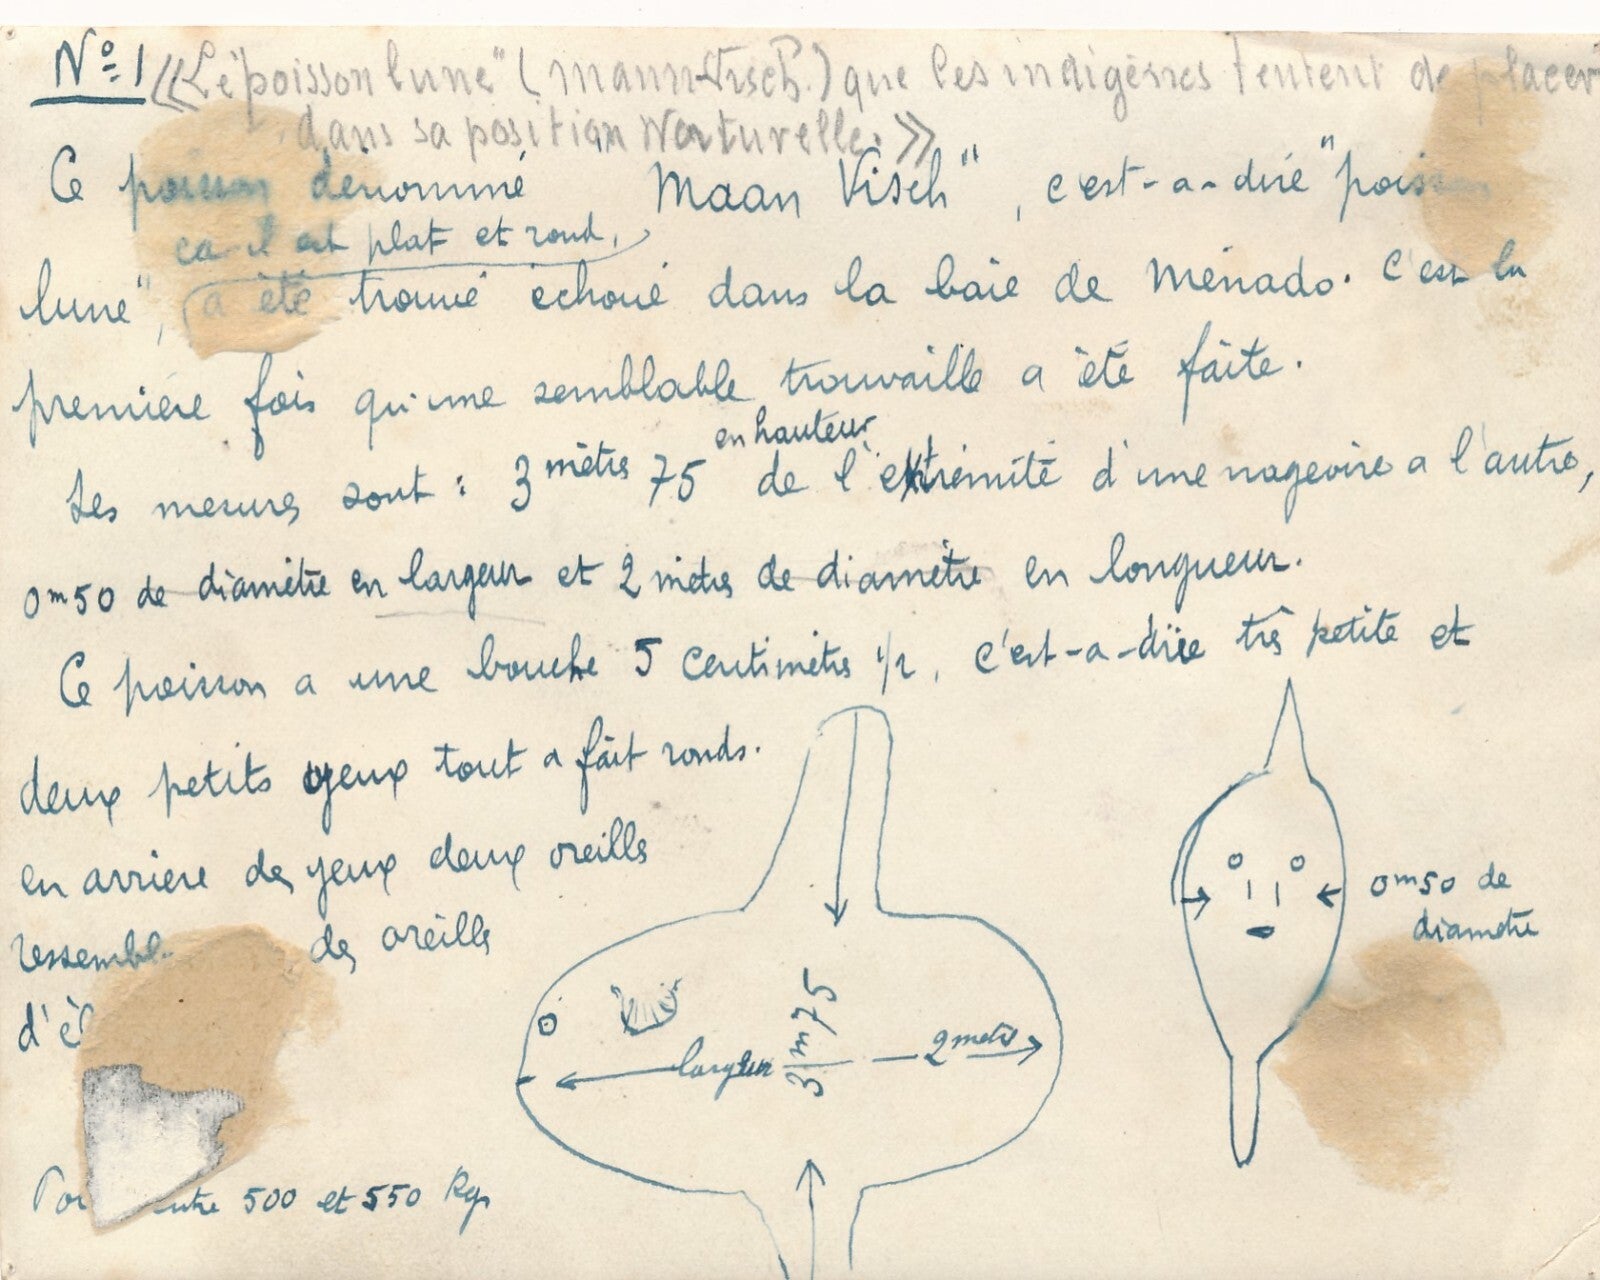 Nº 1 «"Le poisson lune" (Mann-Visch.) que les indigènes tentent de placer
dans sa position Naturelle.»
Ce poisson dénommé "Maan Visch", c'est-a-dire "poisson
car il est plat et rond,
lune", a été trouvé échoué dans la baie de Ménado. C'est la
première fois qu'une semblable trouvaille a été faite.
en hauteur
Les mesures sont : 3 mètres 75 de l'extrémité d'une nageoire a l'autre,
0m50 de diamètre en largeur et 2 mètres de diamètre en longueur.
Ce poisson a une bouche 5 centimètres 1/2, c'est-a-dire très petite et
deux petits yeux tout a fait ronds.
en arrière des yeux deux oreilles
ressembl des oreilles
d'él
entre 500 et 550 kgs
largeur
3m75
2 mètres
0m50 de
diamètre